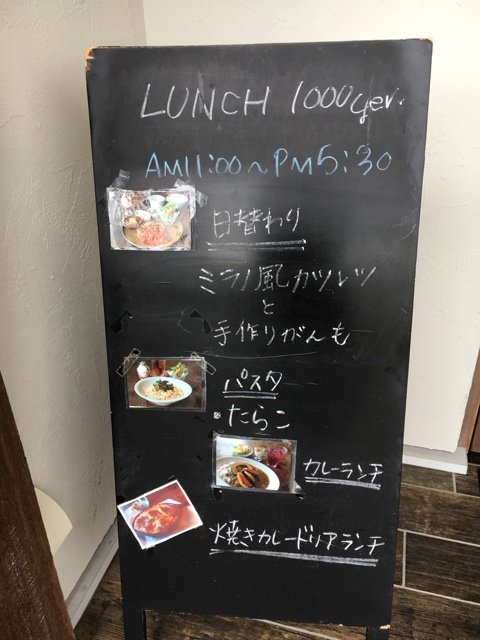 LUNCH 1000yen.
AM11:00~PM5:30
日替わり
ミラノ風カツレツ
と
手作りがんも
パスタ
・たらこ
カレーランチ
焼きカレードリアランチ